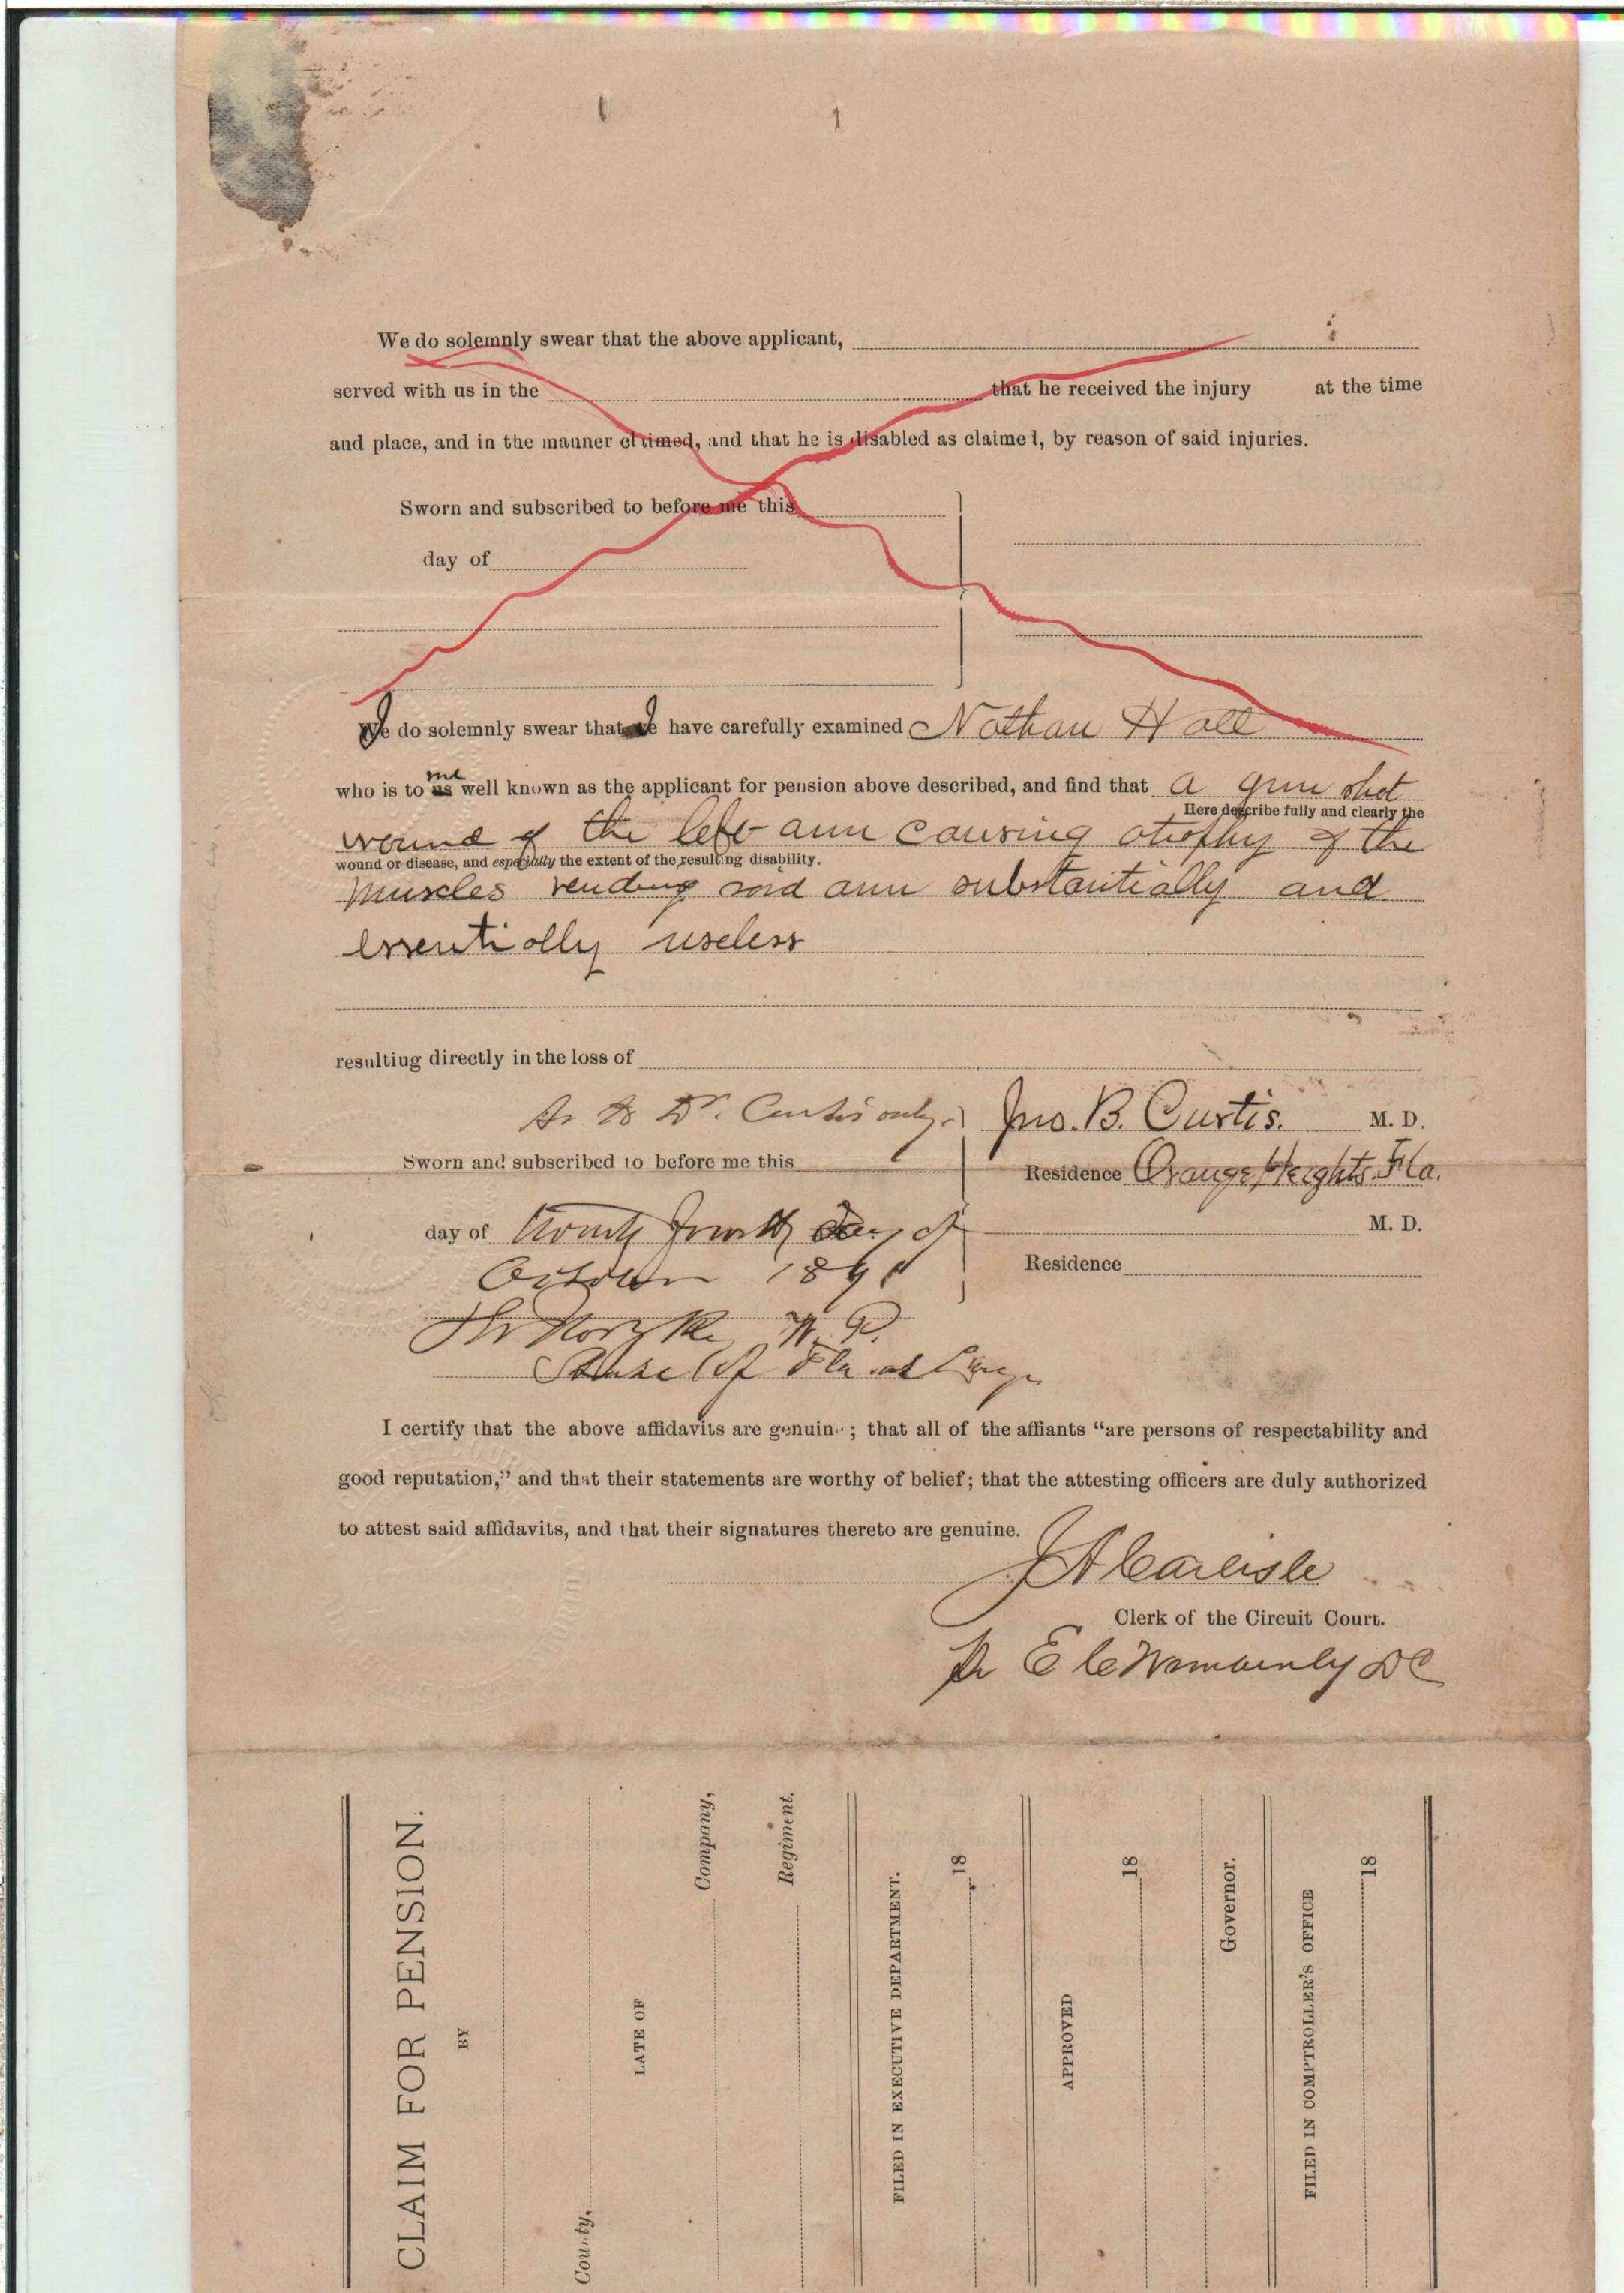 We do solemnly swear that the above applicant,
served with us in the that he received the injury at the time
and place, and in the manner claimed, and that he is disabled as claimed, by reason of said injuries.
Sworn and subscribed to before me this
day of
I do solemnly swear that I have carefully examined Nathan Hall
who is to me well known as the applicant for pension above described, and find that a gun shot
Here describe fully and clearly the
wound of the left arm causing atrophy of the
wound or disease, and especially the extent of the resulting disability.
muscles rending said arm substantially and
essentially useless
resulting directly in the loss of
As to Dr. Curtis only. Jno. B. Curtis. M. D.
Sworn and subscribed to before me this Residence Orange Heights. Fla.
day of twenty fourth day of M. D.
October 189 Residence
N. P.
State of Fla at Large
I certify that the above affidavits are genuine; that all of the affiants "are persons of respectability and
good reputation," and that their statements are worthy of belief; that the attesting officers are duly authorized
to attest said affidavits, and that their signatures thereto are genuine.
J A Carlisle
Clerk of the Circuit Court.
E C DC
CLAIM FOR PENSION.
BY
County,
LATE OF
Company,
Regiment.
FILED IN EXECUTIVE DEPARTMENT.
18
APPROVED
18
Governor.
FILED IN COMPTROLLER'S OFFICE
18